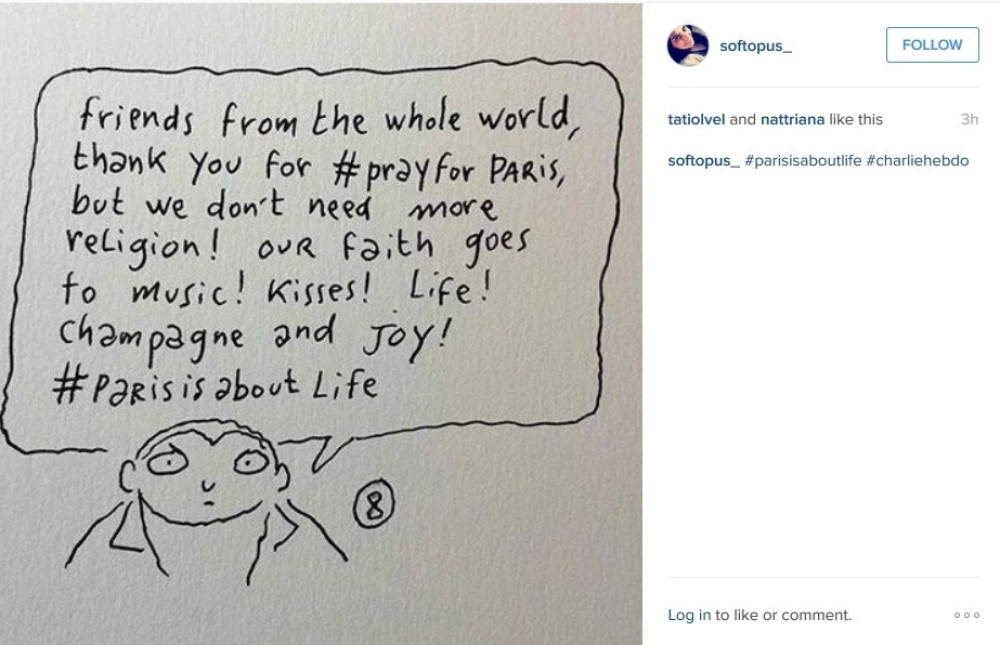 friends from the whole world,
thank you for #prayforPARis,
but we don't need more
religion! ouR faith goes
to music! Kisses! Life!
champagne and Joy!
#Parisisabout Life
8
softopus_
FOLLOW
tatiolvel and nattriana like this
3h
softopus_ #parisisaboutlife #charliehebdo
Log in to like or comment.